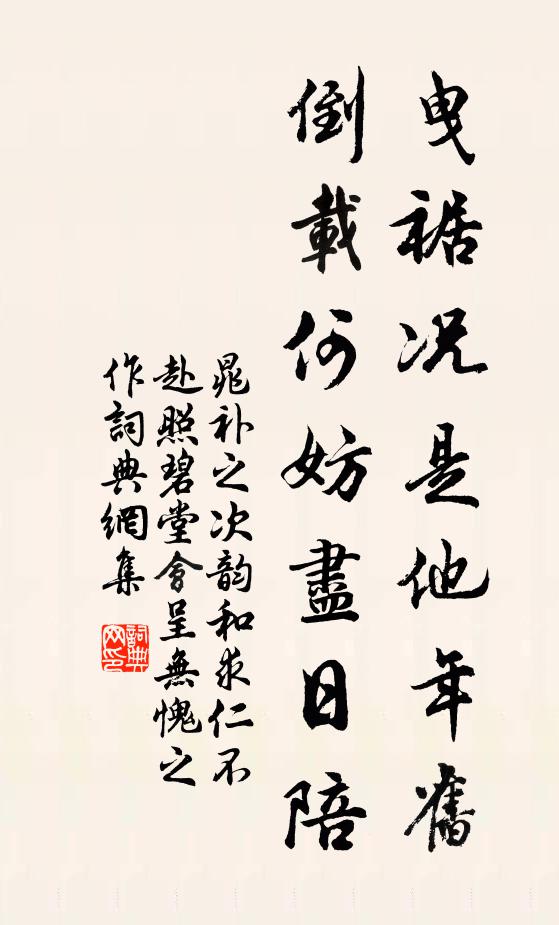 曳裾况是他年舊
倒載何妨盡日陪
晁补之次韵和求仁不
赴照碧堂會呈無愧之
作詞典網集
詞典
网印